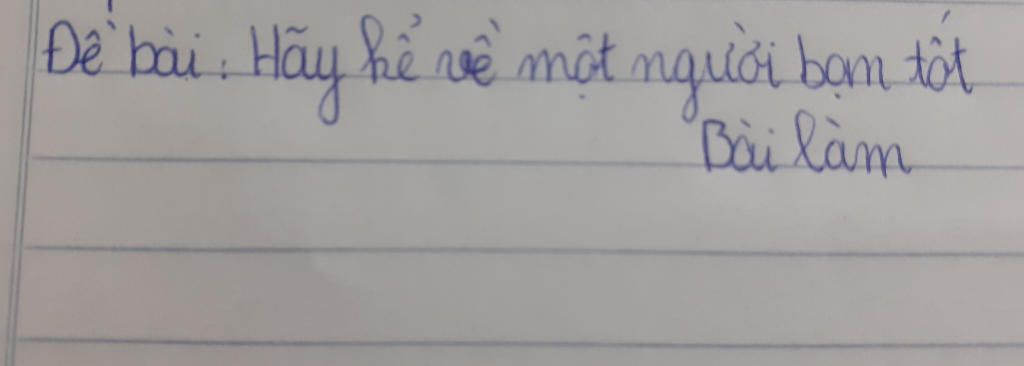 Đề bài: Hãy kể về một người bạn tốt
Bài làm